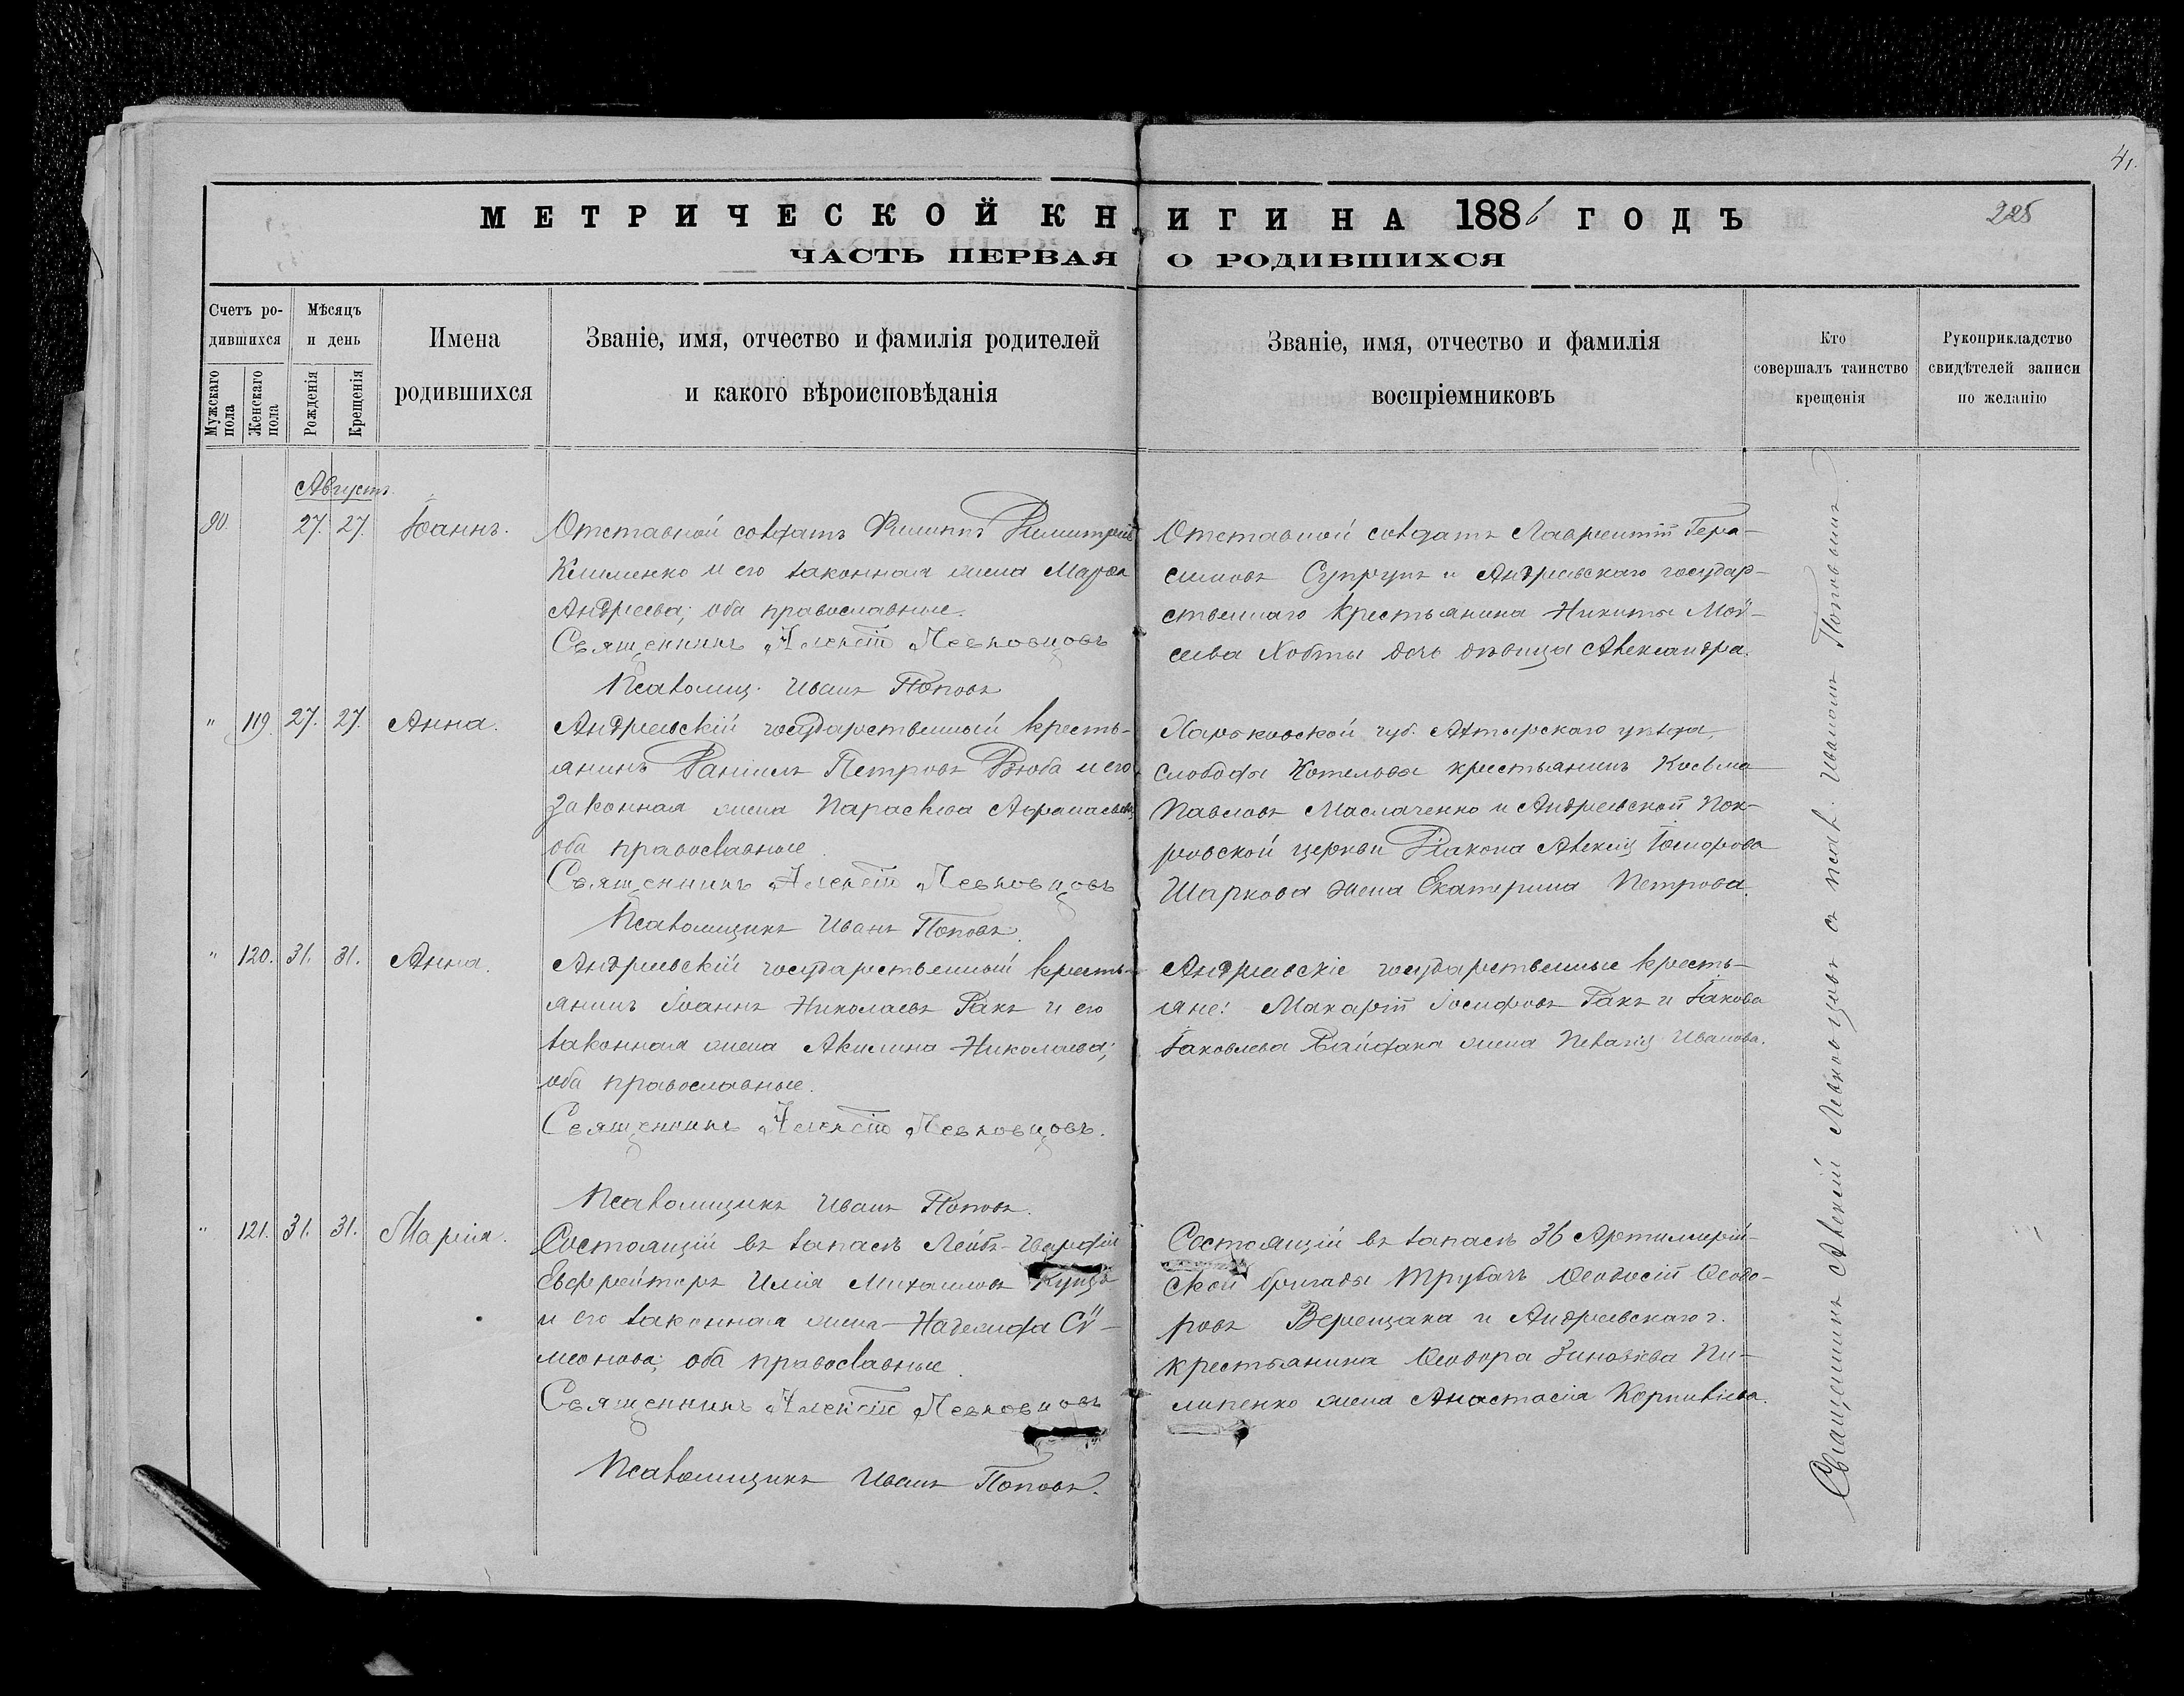 41.
МЕТРИЧЕСКОЙ КНИГИ НА 1886 ГОДЪ
225
ЧАСТЬ ПЕРВАЯ О РОДИВШИХСЯ
Счетъ ро-
дившихся
Мужскаго пола
Женскаго пола
Мѣсяцъ
и день
Рожденія
Крещенія
Имена
родившихся
Званіе, имя, отчество и фамилія родителей
и какого вѣроисповѣданія
Званіе, имя, отчество и фамилія
воспріемниковъ
Кто
совершалъ таинство
крещенія
Рукоприкладство
свидѣтелей записи
по желанію
Августъ.
90. 27. 27. Іоаннъ.
Отставной солдатъ Филиппъ Димитріевъ
Клименко и его законная жена Марѳа
Андреева; оба православные.
Священникъ Алексій Левковцовъ
Псаломщ. Иванъ Поповъ
Отставной солдатъ Лаврентій Гера-
симовъ Супрунъ и Андреевскаго государ-
ственнаго крестьянина Никиты Мой-
сеева Хобты дочь дѣвица Александра.
" 119. 27. 27. Анна.
Андреевскій государственный кресть-
янинъ Даніилъ Петровъ Дзюба и его
законная жена Параскева Аѳанасьева
оба православные.
Священникъ Алексій Левковцовъ
Псаломщикъ Иванъ Поповъ.
Харьковской губ. Ахтырскаго уѣзда,
слободы Котельвы крестьянинъ Косьма
Павловъ Маслаченко и Андреевской Пок-
ровской церкви Діакона Алексія
Шаркова жена Екатерина Петрова.
" 120. 31. 31. Анна.
Андреевскій государственный кресть-
янинъ Іоаннъ Николаевъ Гакъ и его
законная жена Акилина Николаева;
оба православные.
Священникъ Алексій Левковцовъ.
Псаломщикъ Иванъ Поповъ.
Андреевскіе государственные кресть-
яне: Макарій Іосифовъ Гакъ и Іакова
Іаковлева Байдака жена Пелагія Иванова.
" 121. 31. 31. Марія.
Состоящій въ запасѣ Лейбъ-Гвардіи
Ефрейторъ Илія Михаиловъ
и его законная жена Надежда Сѵ-
меонова; оба православные.
Священникъ Алексій Левковцовъ
Псаломщикъ Иванъ Поповъ.
Состоящій въ запасѣ 36 Артиллерій-
ской бригады трубачъ Ѳеодосій Ѳеодо-
ровъ Верещака и Андреевскаго г.
крестьянина Ѳеодора Зиновіева Пи-
липенко жена Анастасія Корнилієва.
Священникъ Алексій Левковцовъ съ псал. Иваномъ Поповымъ.